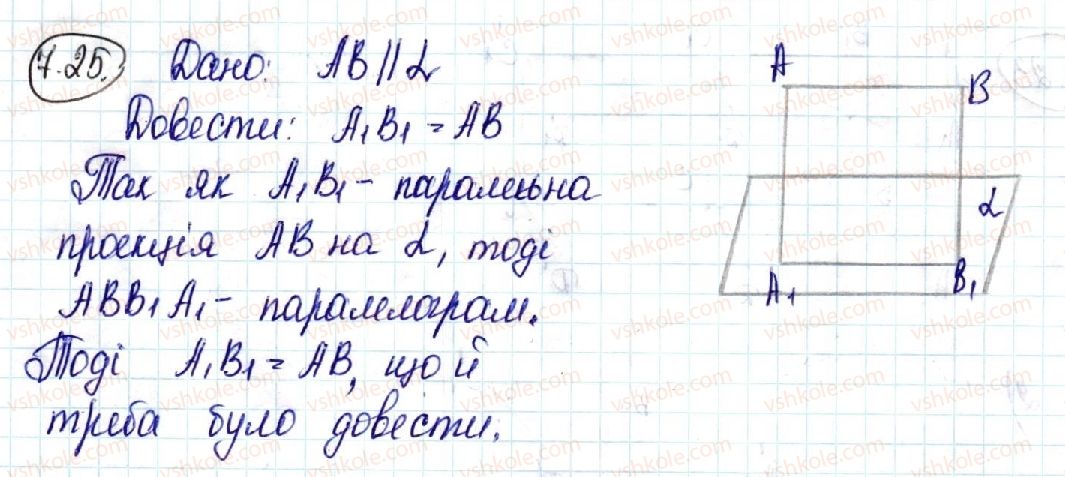 7.25. Дано: AB || α
Довести: A₁B₁ = AB
Так як A₁B₁ - паралельна
проекція AB на α, тоді
ABB₁A₁ - паралелограм.
Тоді A₁B₁ = AB, що й
треба було довести.
A
B
α
A₁
B₁